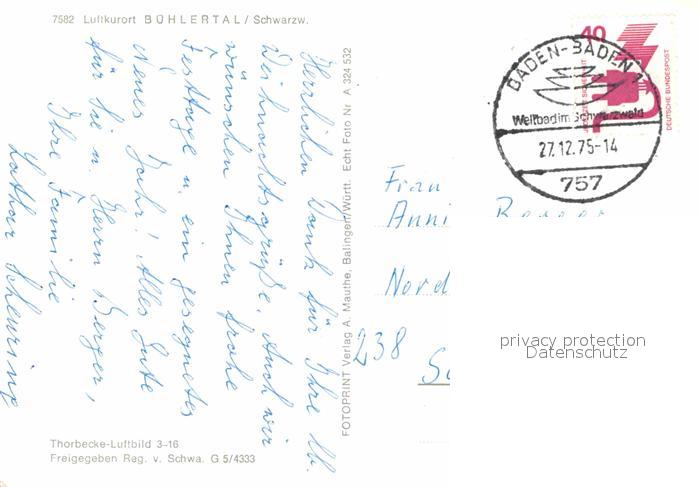 7582 Luftkurort BÜHLERTAL / Schwarzw.
Herzlichen Dank für Ihre lb.
Weihnachtsgrüße. Auch wir
wünschen Ihnen frohe
Festtage u. ein gesegnetes
Neues Jahr! Alles Gute
für Sie u. Herrn Berger,
Ihre Familie
Lothar Scheuring
Thorbecke-Luftbild 3-16
Freigegeben Reg. v. Schwa. G 5/4333
FOTOPRINT Verlag A. Mauthe, Balingen/Württ. Echt Foto Nr. A 324 532
40
JEDERZEIT SICHERHEIT
DEUTSCHE BUNDESPOST
BADEN-BADEN 1
Weltbad im Schwarzwald
27.12.75-14
757
Frau
Anni Berger
Nord
238 Sc
privacy protection
Datenschutz